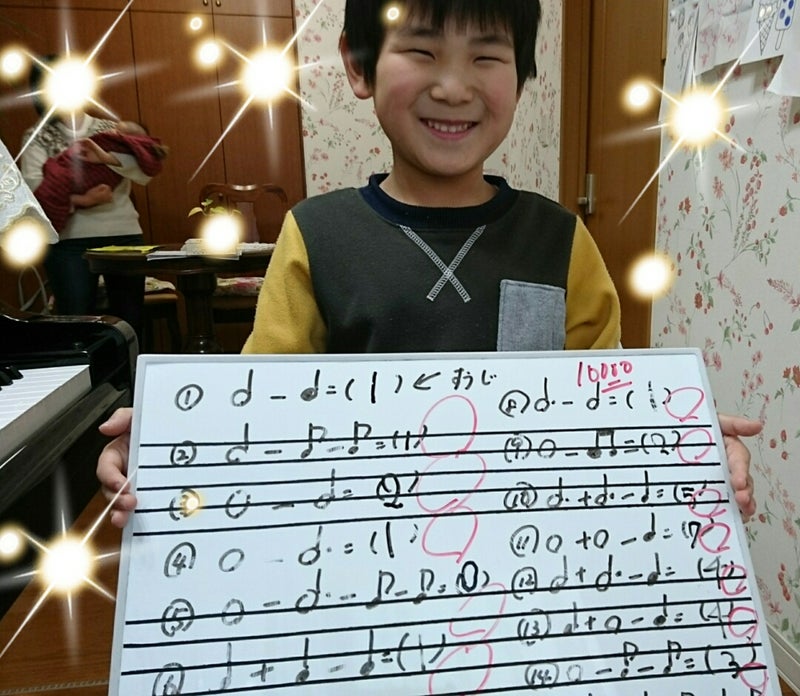 ① 𝅗𝅥 - ♩ = ( 1 ) ← すうじ
② 𝅗𝅥 - ♪ - ♪ = (1)
③ 𝅝 - 𝅗𝅥 = (2)
④ 𝅝 - 𝅗𝅥. = (1)
⑤ 𝅝 - 𝅗𝅥. - ♪ - ♪ = (0)
⑥ ♩ + ♩ - ♩ = (1)
10000
⑧ 𝅗𝅥. - 𝅗𝅥 = (1)
⑨ 𝅝 - ♫ = (2)
⑩ 𝅗𝅥. + 𝅗𝅥. - ♩ = (5)
⑪ 𝅝 + 𝅝 - ♩ = (7)
⑫ 𝅗𝅥 + 𝅗𝅥. - ♩ = (4)
⑬ ♩ + 𝅝 - ♩ = (4)
⑭ 𝅝 - ♪ - ♪ = (3)